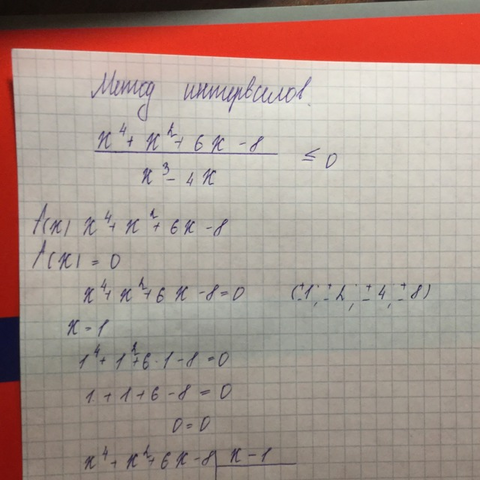 Метод интервалов
x⁴ + x² + 6x - 8
x³ - 4x
≤ 0
P(x) x⁴ + x² + 6x - 8
P(x) = 0
x⁴ + x² + 6x - 8 = 0 (±1, ±2, ±4, ±8)
x = 1
1⁴ + 1² + 6 · 1 - 8 = 0
1 + 1 + 6 - 8 = 0
0 = 0
x⁴ + x² + 6x - 8 | x - 1